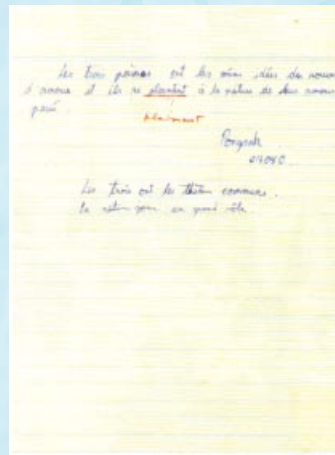 Les trois poèmes ont les mêmes idées de
d'amour et ils se plaintent à la nature de leur amour
passé.
plaignent
Pongsak
Les trois ont les thèmes communs.
la nature joue un grand rôle.